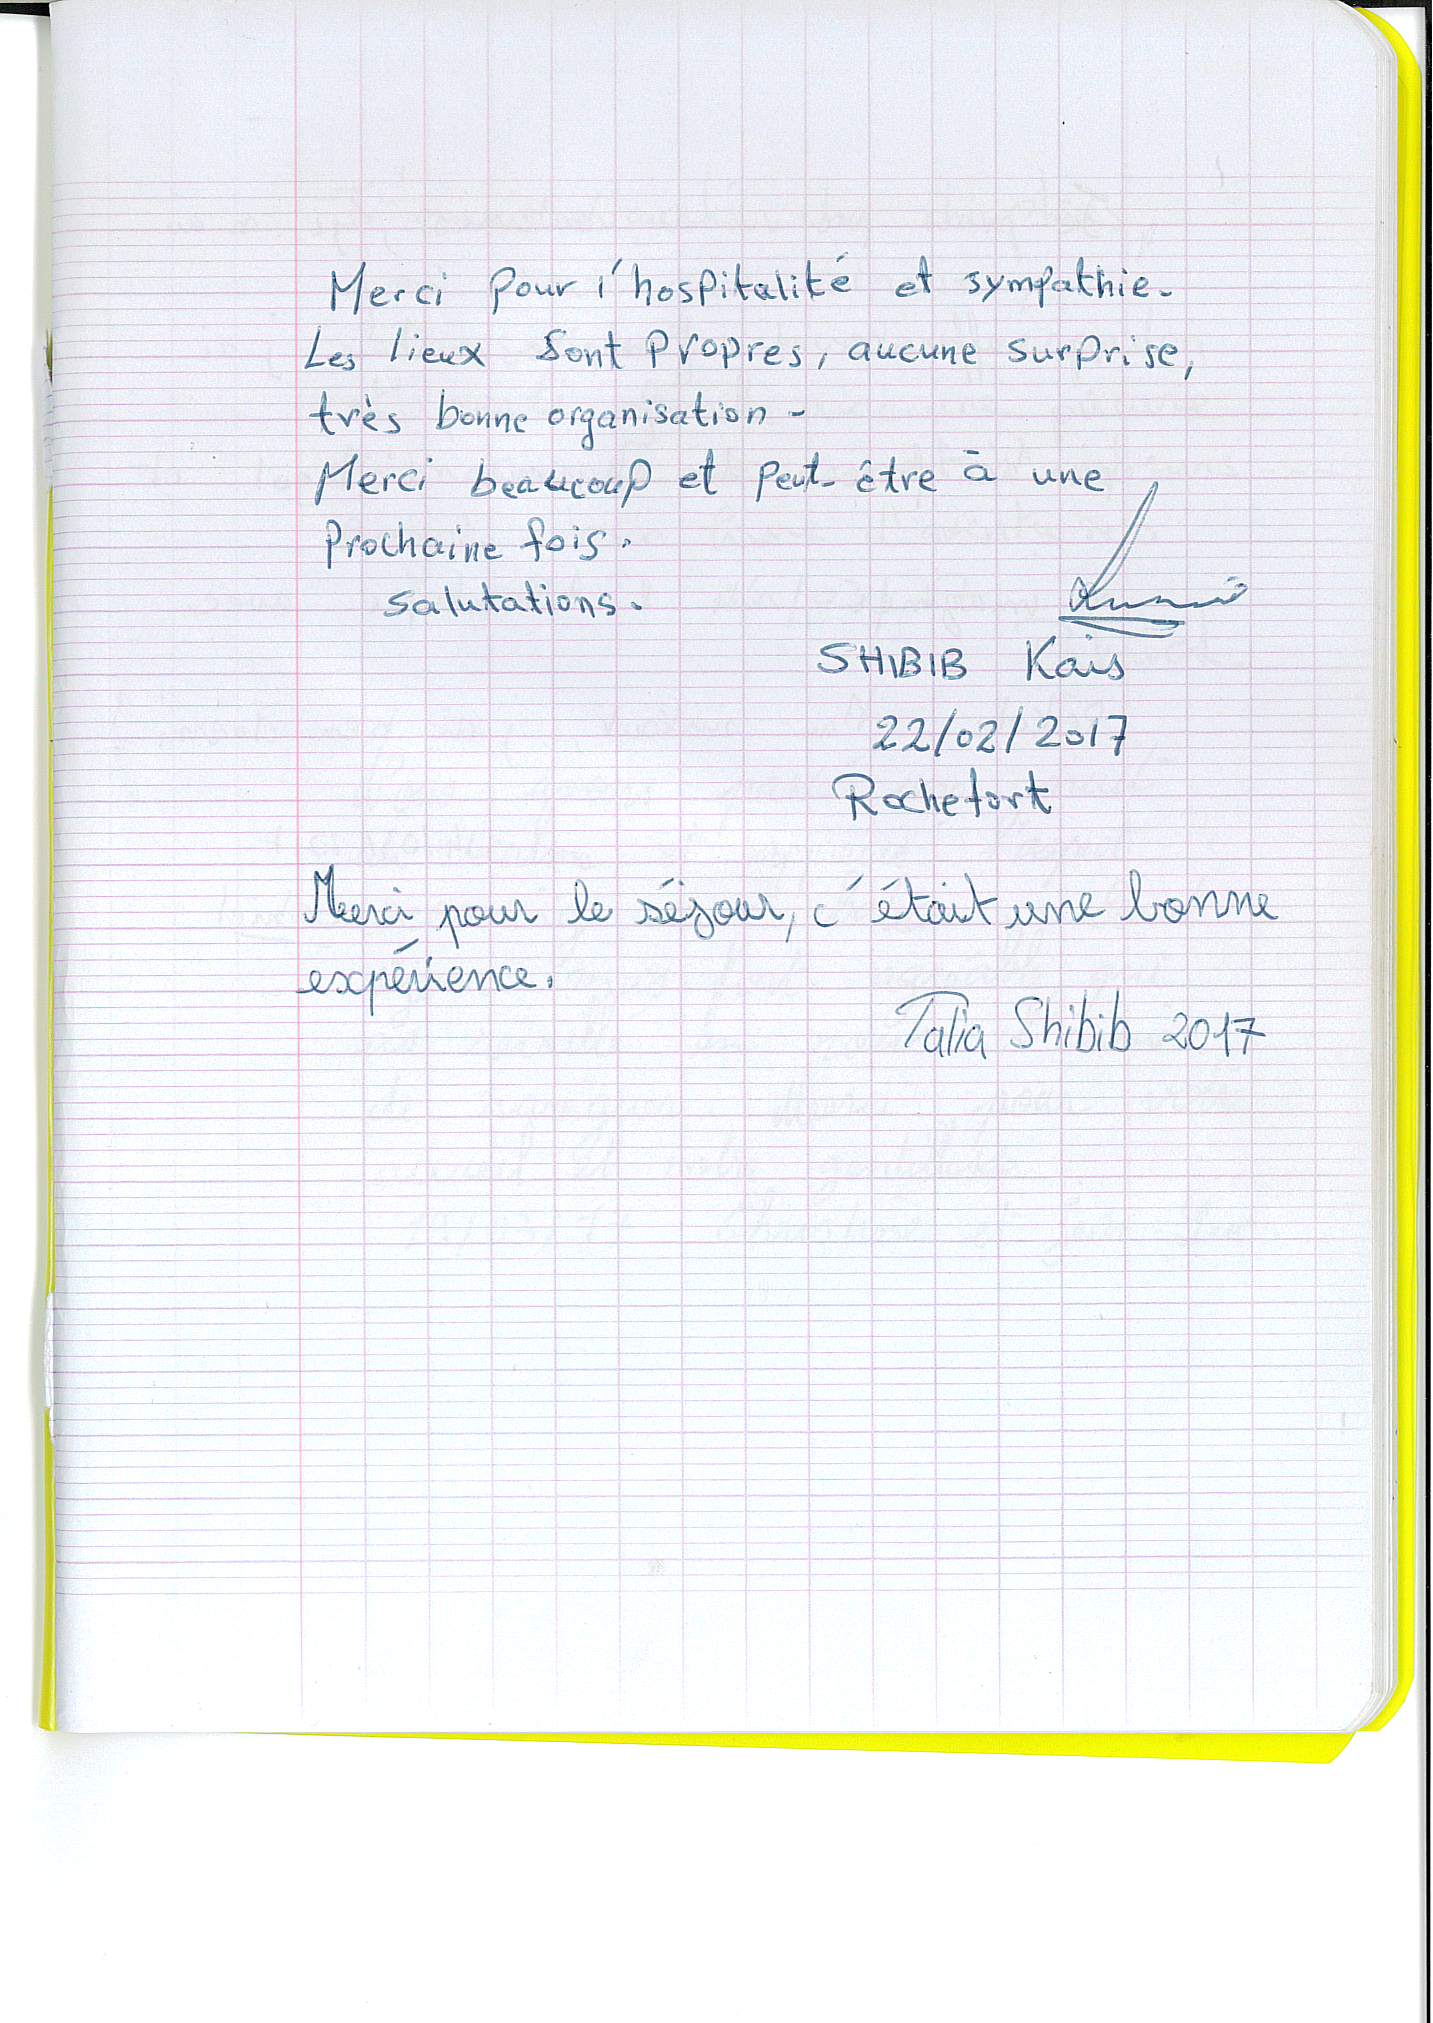 Merci pour l'hospitalité et sympathie.
Les lieux sont propres, aucune surprise,
très bonne organisation -
Merci beaucoup et peut-être à une
prochaine fois.
salutations.
SHIBIB Kais
22/02/2017
Rochefort
Merci pour le séjour, c'était une bonne
expérience.
Talia Shibib 2017